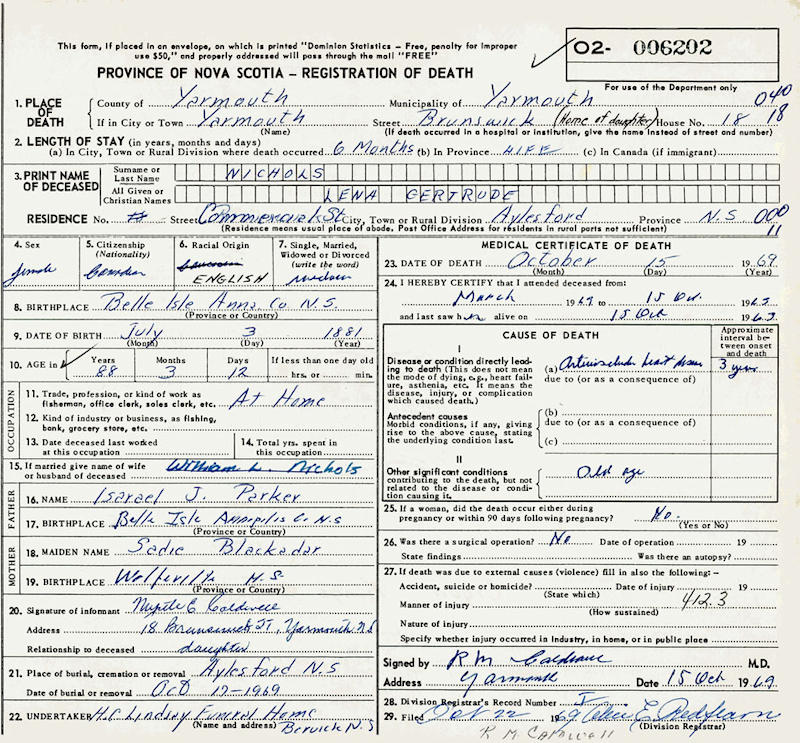 This form, if placed in an envelope, on which is printed "Dominion Statistics – Free, penalty for improper
use $50," and properly addressed will pass through the mail "FREE"
O2- 006202
PROVINCE OF NOVA SCOTIA – REGISTRATION OF DEATH
For use of the Department only
1. PLACE OF DEATH { County of Yarmouth Municipality of Yarmouth 040
If in City or Town Yarmouth Street Brunswick (Home of daughter) House No. 18 18
(Name) (If death occurred in a hospital or institution, give the name instead of street and number)
2. LENGTH OF STAY (in years, months and days)
(a) In City, Town or Rural Division where death occurred 6 Months (b) In Province LIFE (c) In Canada (if immigrant)
3. PRINT NAME OF DECEASED { Surname or Last Name NICHOLS
All Given or Christian Names LENA GERTRUDE
RESIDENCE No. # Street Commercial St City, Town or Rural Division Aylesford Province N.S 000
(Residence means usual place of abode. Post Office Address for residents in rural parts not sufficient) 11
4. Sex
female
5. Citizenship (Nationality)
Canadian
6. Racial Origin
ENGLISH
7. Single, Married, Widowed or Divorced (write the word)
widow
8. BIRTHPLACE Belle Isle Anna. Co. N.S.
(Province or Country)
9. DATE OF BIRTH July 3 1881
(Month) (Day) (Year)
10. AGE in Years Months Days If less than one day old
88 3 12 hrs. or min.
OCCUPATION
11. Trade, profession, or kind of work as fisherman, office clerk, sales clerk, etc. At Home
12. Kind of industry or business, as fishing, bank, grocery store, etc.
13. Date deceased last worked at this occupation
14. Total yrs. spent in this occupation
15. If married give name of wife or husband of deceased William L. Nichols
FATHER
16. NAME Isarael J. Parker
17. BIRTHPLACE Belle Isle Annapilis Co. N.S
(Province or Country)
MOTHER
18. MAIDEN NAME Sadie Blackadar
19. BIRTHPLACE Wolfville N.S.
(Province or Country)
20. Signature of informant Myrtle E Caldwell
Address 18 Brunswick St, Yarmouth N.S
Relationship to deceased daughter
21. Place of burial, cremation or removal Aylesford N.S
Date of burial or removal Oct 17-1969
22. UNDERTAKER H.C Lindsay Funeral Home
(Name and address) Berwick N.S
MEDICAL CERTIFICATE OF DEATH
23. DATE OF DEATH October 15 1969
(Month) (Day) (Year)
24. I HEREBY CERTIFY that I attended deceased from:
March 1967 to 15 Oct. 1969
and last saw her alive on 15 Oct 1969
CAUSE OF DEATH
Approximate interval between onset and death
I
Disease or condition directly leading to death (This does not mean the mode of dying, e.g., heart failure, asthenia, etc. It means the disease, injury, or complication which caused death.)
(a) Arteriosclerotic heart disease 3 years
due to (or as a consequence of)
Antecedent causes
Morbid conditions, if any, giving rise to the above cause, stating the underlying condition last.
(b)
due to (or as a consequence of)
(c)
II
Other significant conditions contributing to the death, but not related to the disease or condition causing it.
Old age
25. If a woman, did the death occur either during pregnancy or within 90 days following pregnancy? No.
(Yes or No)
26. Was there a surgical operation? No Date of operation 19
State findings Was there an autopsy?
27. If death was due to external causes (violence) fill in also the following:–
Accident, suicide or homicide? Date of injury 19
(State which)
Manner of injury 412.3
(How sustained)
Nature of injury
Specify whether injury occurred in industry, in home, or in public place
Signed by R M Caldwell M.D.
Address Yarmouth Date 15 Oct 1969
28. Division Registrar's Record Number
29. Filed Oct 22 1969
(Division Registrar)
R M Caldwell